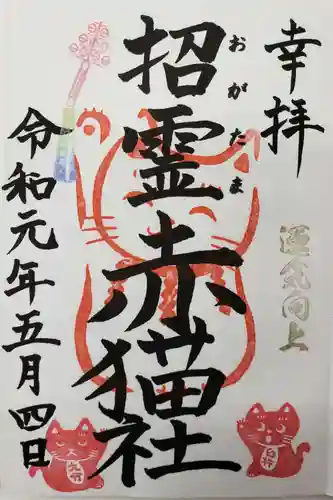 幸拝
運気向上
招霊赤猫社
おがたま
令和元年五月四日